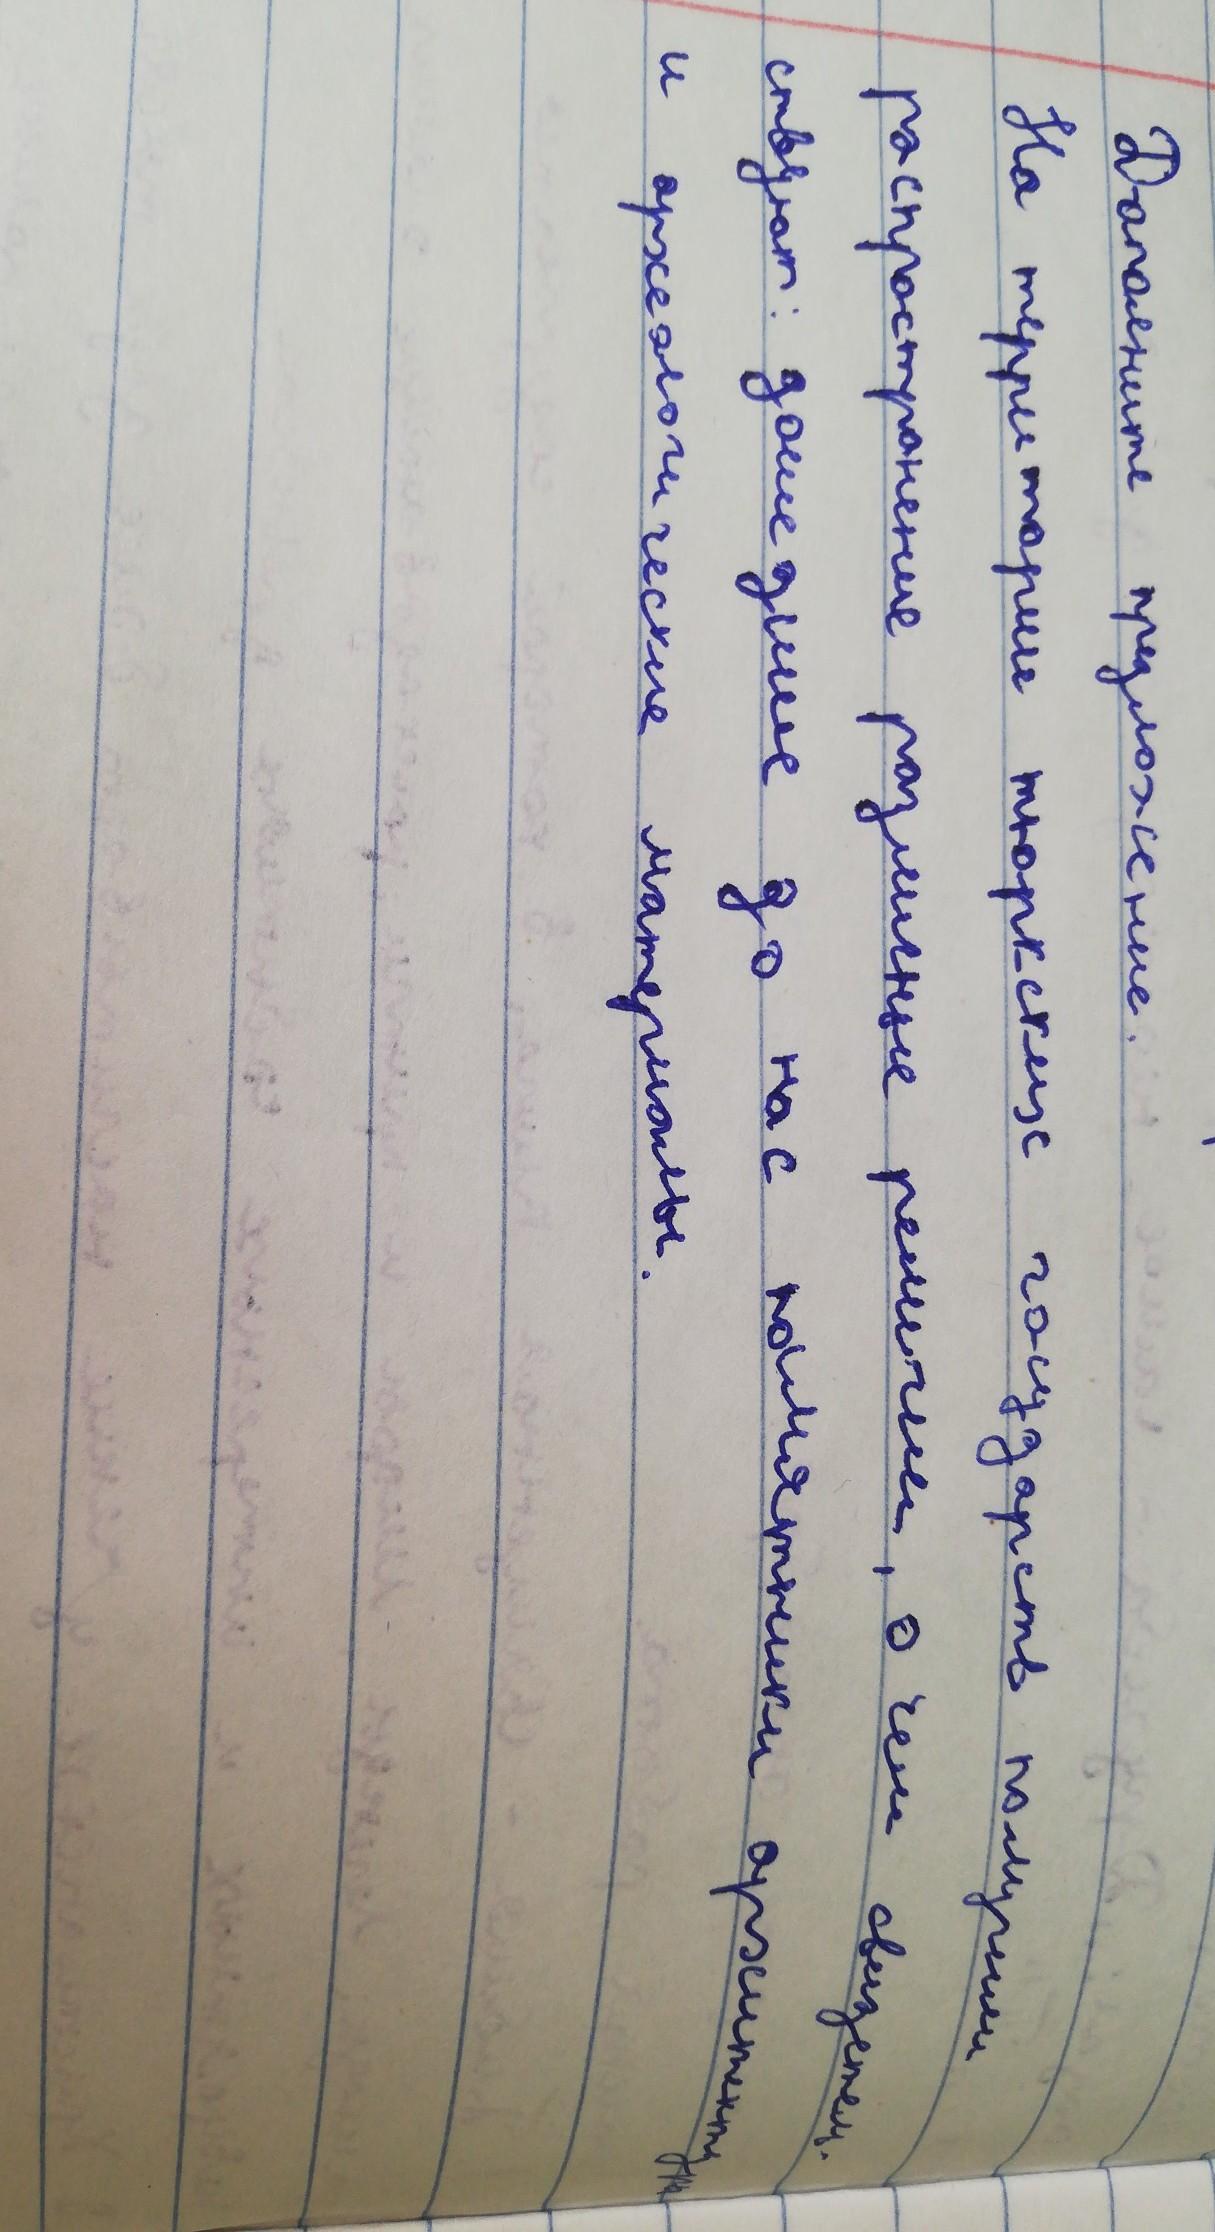 Дополните предложение.
На территории тюркских государств получили
распространение различные религии, о чем свидетель-
ствуют: дошедшие до нас памятники архитектуры
и археологические материалы.